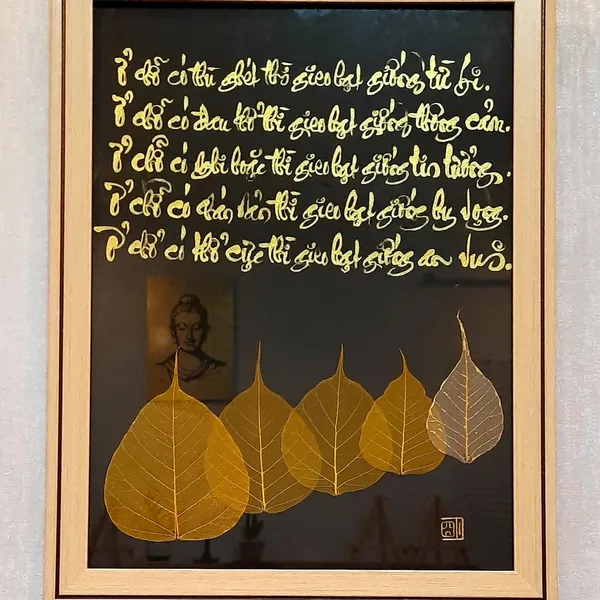 Ở chỗ có thù ghét thì gieo hạt giống từ bi.
Ở chỗ có đau khổ thì gieo hạt giống thông cảm.
Ở chỗ có nghi hoặc thì gieo hạt giống tin tưởng.
Ở chỗ có chán nản thì gieo hạt giống hy vọng.
Ở chỗ có khổ cực thì gieo hạt giống an vui.